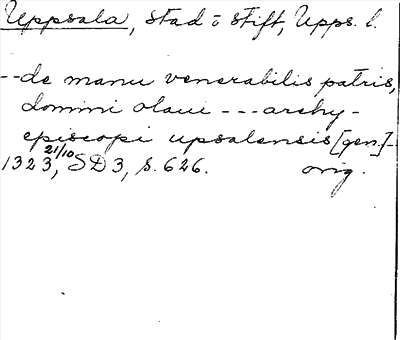 Uppsala, stad o stift, Upps. l.
--de manu venerabilis patris,
domini olaui --- archy-
episcopi upsalensis [gen.]--
1323 21/10, SD 3, s. 626. orig.